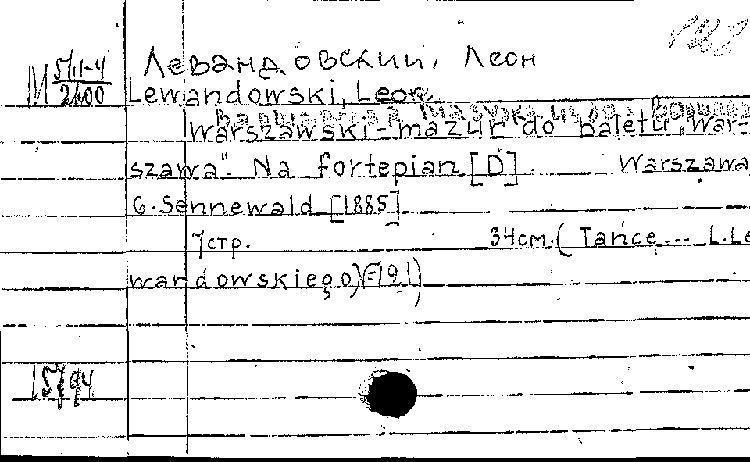 М 5/11-4
2400
Левандовский, Леон
Lewandowski, Leon.
Warszawski-mazur do baletu "War-
szawa". Na fortepian [D] Warszawa,
G. Sennewald [1885]
7стр. 34см. (Tańce... L.Le
wandowskiego)(-191)
15794